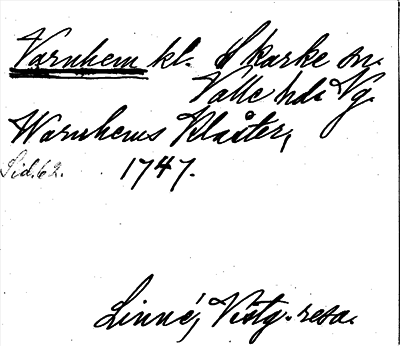 Varnhem kl. Skarke sn.
Valle hd. Vg.
Warnhems Klåster,
Sid. 62. 1747.
Linné, Västg. resa.